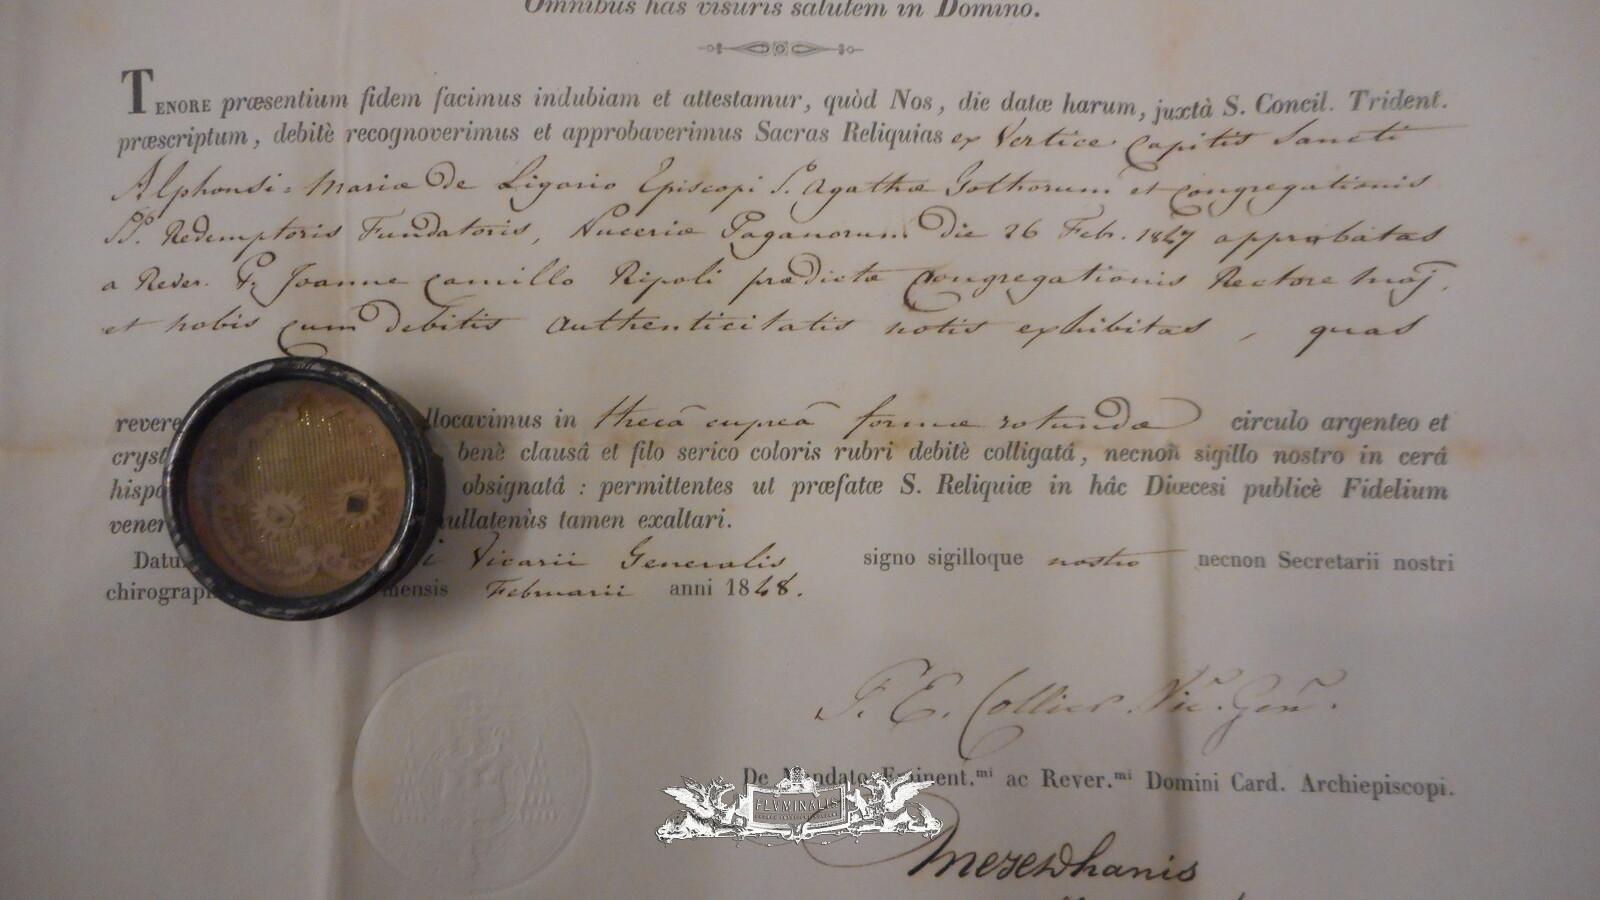 Omnibus has visuris salutem in Domino.
TENORE præsentium fidem facimus indubiam et attestamur, quòd Nos, die datæ harum, juxtà S. Concil. Trident.
præscriptum, debitè recognoverimus et approbaverimus Sacras Reliquias ex Vertice Capitis Sancti
Alphonsi-Mariæ De Ligorio Episcopi S. Agathæ Gothorum et Congregationis
SS. Redemptoris Fundatoris, Nuceriæ Paganorum Die 26 Feb. 1847 approbatas
a Rever. P. Joanne Camillo Ripoli prædictæ Congregationis Rectore Maj.
et nobis cum Debitis authenticitatis notis exhibitas, quas
revere llocavimus in thecâ cupreâ formæ rotundæ circulo argenteo et
cryst benè clausâ et filo serico coloris rubri debitè colligatâ, necnon sigillo nostro in cerâ
hispa obsignatâ : permittentes ut præfatæ S. Reliquiæ in hâc Diœcesi publicè Fidelium
vener ullatenùs tamen exaltari.
Datu i Vicarii Generalis signo sigilloque nostro necnon Secretarii nostri
chirograp mensis Februarii anni 1848.
J. E. Collier Vic. Gen.
De Mandato Eminent.mi ac Rever.mi Domini Card. Archiepiscopi.
FLVMINALIS